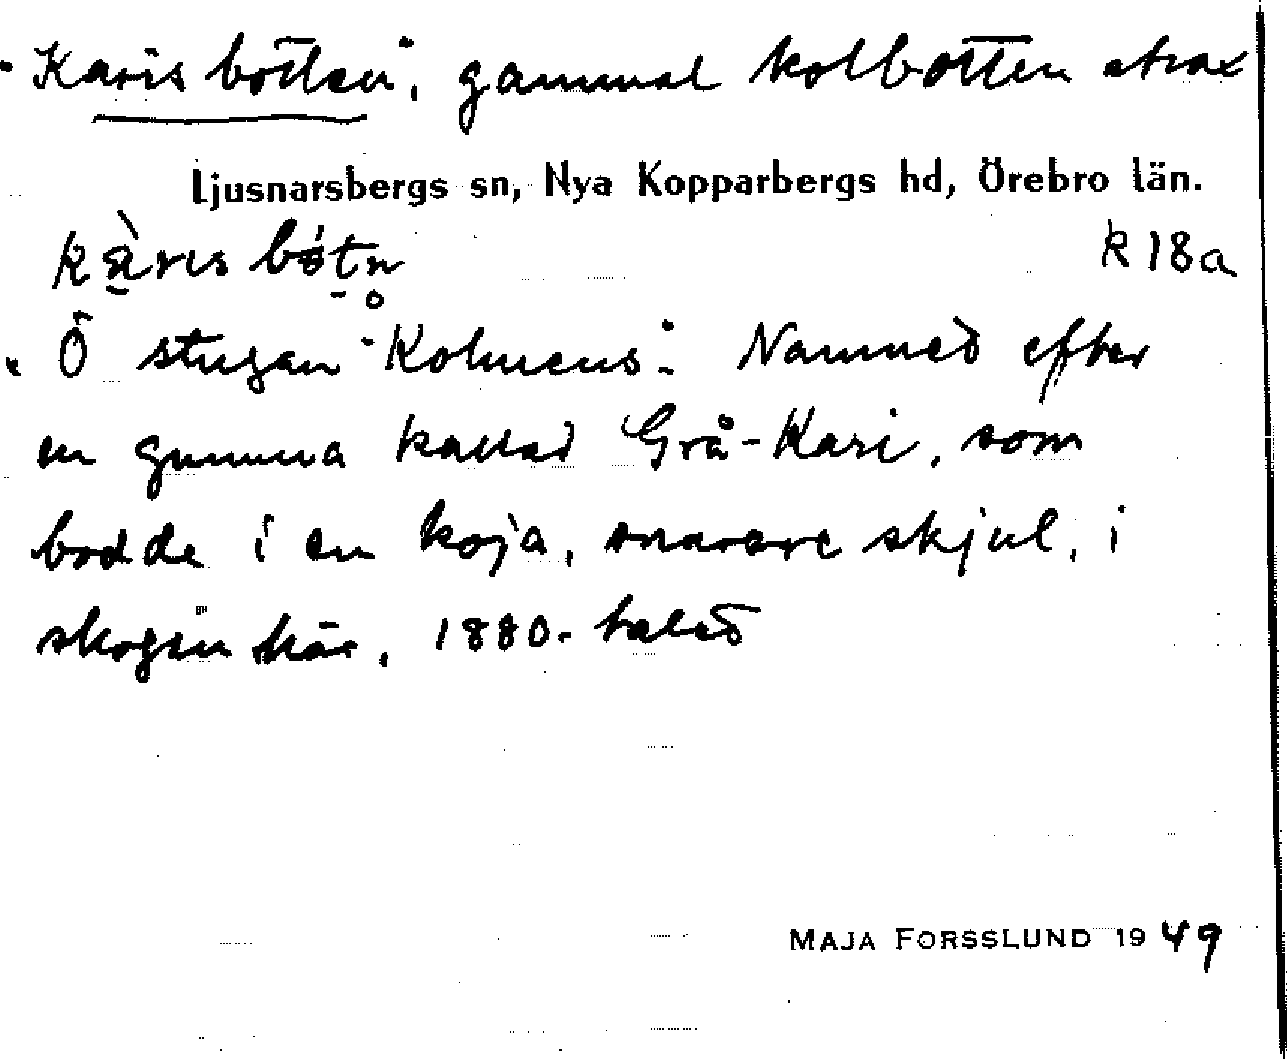 "Karis botten", gammal kolbotten strax
Ljusnarsbergs sn, Nya Kopparbergs hd, Örebro län.
R 18a
Ö stugan "Kolmens". Namned efter
en gumma kallad Grå-Kari, som
bodde i en koja, snarare skjul, i
skogen här, 1880-taled
MAJA FORSSLUND 1949